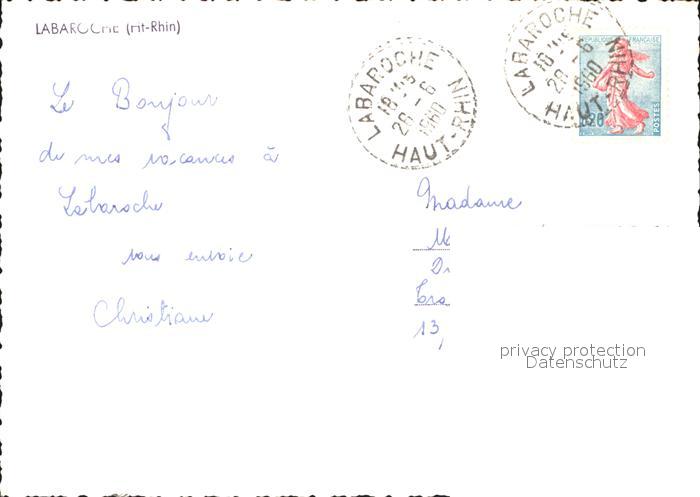 LABAROCHE (Ht-Rhin)
Le Bonjour
de mes vacances à
Labaroche
vous envoie
Christiane
LABAROCHE
18H45
26-6
1960
HAUT-RHIN
LABAROCHE
18H45
26-6
1960
HAUT-RHIN
REPUBLIQUE FRANÇAISE
0,20
POSTES
Madame
13,
privacy protection
Datenschutz